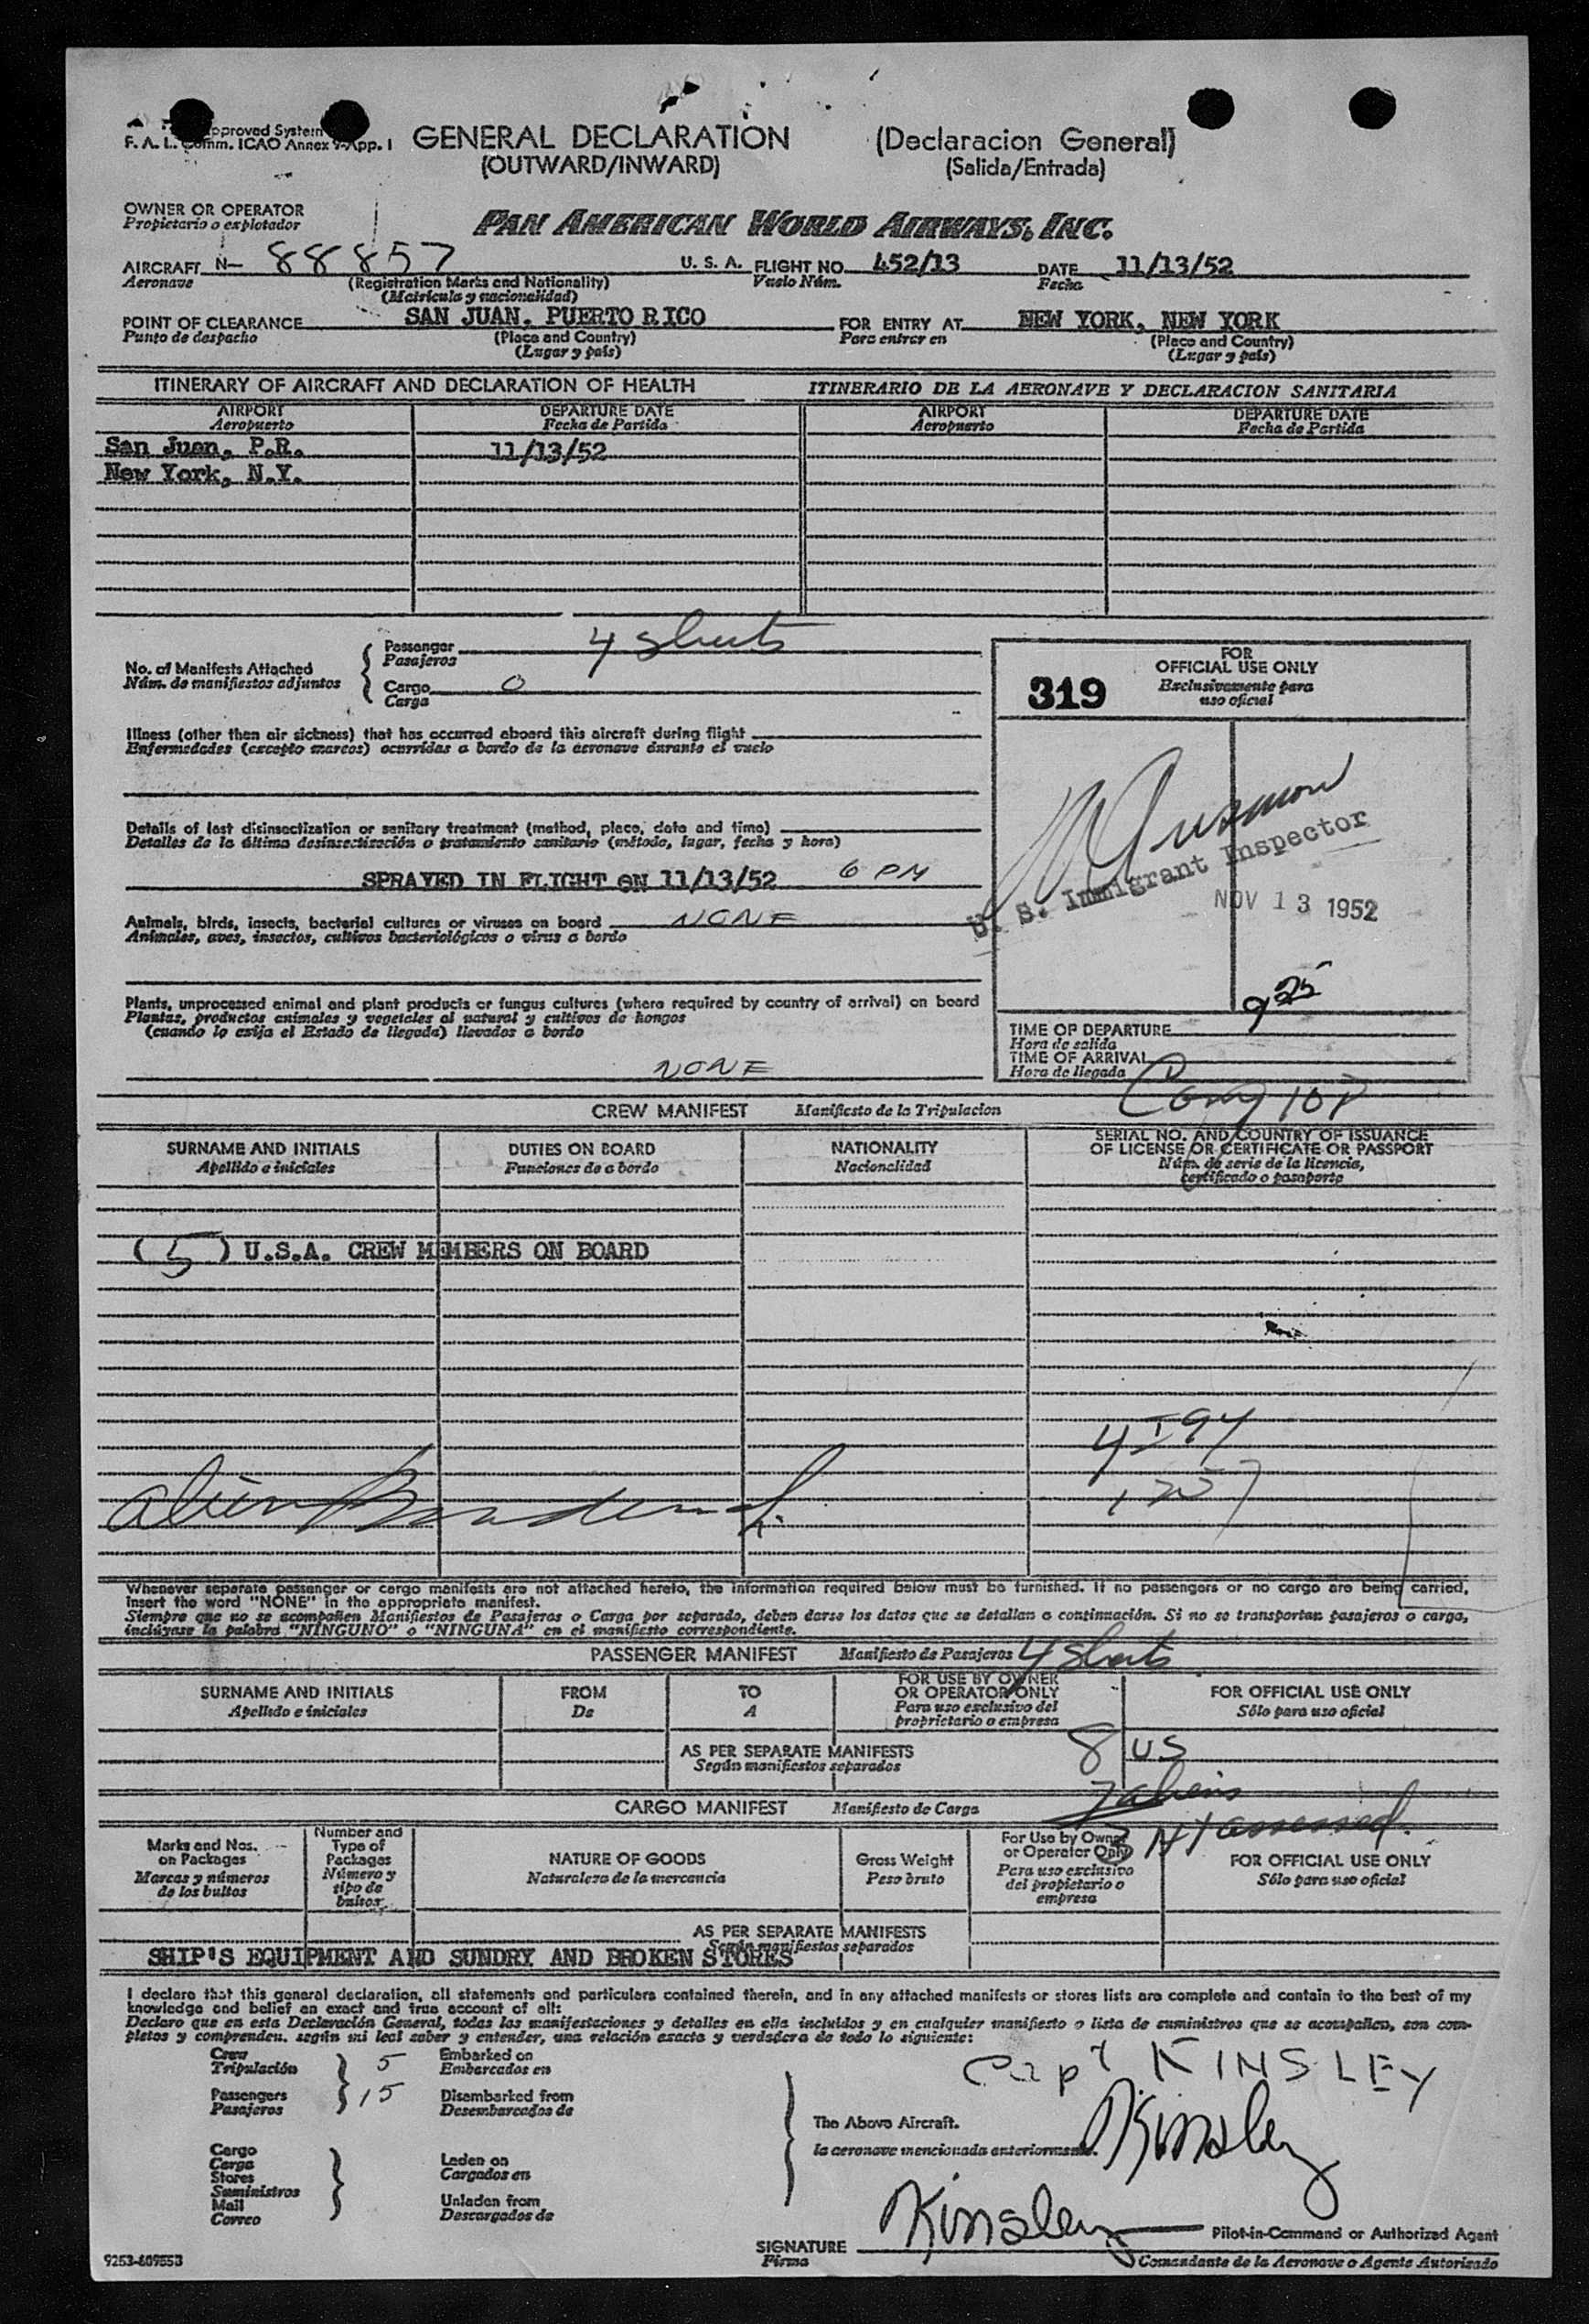 pproved System
F. A. L. Comm. ICAO Annex 9-App. I
GENERAL DECLARATION (Declaracion General)
(OUTWARD/INWARD) (Salida/Entrada)
OWNER OR OPERATOR
Propietario o explotador
PAN AMERICAN WORLD AIRWAYS, INC.
AIRCRAFT N- 88857 U. S. A. FLIGHT NO. 452/13 DATE 11/13/52
Aeronave (Registration Marks and Nationality) Vuelo Núm. Fecha
(Matrícula y nacionalidad)
POINT OF CLEARANCE SAN JUAN, PUERTO RICO FOR ENTRY AT NEW YORK, NEW YORK
Punto de despacho (Place and Country) Para entrar en (Place and Country)
(Lugar y país) (Lugar y país)
ITINERARY OF AIRCRAFT AND DECLARATION OF HEALTH ITINERARIO DE LA AERONAVE Y DECLARACION SANITARIA
AIRPORT DEPARTURE DATE AIRPORT DEPARTURE DATE
Aeropuerto Fecha de Partida Aeropuerto Fecha de Partida
San Juan, P.R. 11/13/52
New York, N.Y.
No. of Manifests Attached
Núm. de manifiestos adjuntos
Passenger 4 sheets
Pasajeros
Cargo 0
Carga
Illness (other then air sickness) that has occurred aboard this aircraft during flight
Enfermedades (excepto mareos) ocurridas a bordo de la aeronave durante el vuelo
Details of last disinsectization or sanitary treatment (method, place, date and time)
Detalles de la última desinsectización o tratamiento sanitario (método, lugar, fecha y hora)
SPRAYED IN FLIGHT ON 11/13/52 6 PM
Animals, birds, insects, bacterial cultures or viruses on board NONE
Animales, aves, insectos, cultivos bacteriológicos o virus a bordo
Plants, unprocessed animal and plant products or fungus cultures (where required by country of arrival) on board
Plantas, productos animales y vegetales al natural y cultivos de hongos
(cuando lo exija el Estado de llegada) llevados a bordo
NONE
FOR
OFFICIAL USE ONLY
319
Exclusivamente para
uso oficial
U. S. Immigrant Inspector
NOV 13 1952
9 25
TIME OF DEPARTURE
Hora de salida
TIME OF ARRIVAL
Hora de llegada
CREW MANIFEST Manifiesto de la Tripulacion
SURNAME AND INITIALS DUTIES ON BOARD NATIONALITY SERIAL NO. AND COUNTRY OF ISSUANCE
OF LICENSE OR CERTIFICATE OR PASSPORT
Apellido e iniciales Funciones de a bordo Nacionalidad Núm. de serie de la licencia,
certificado o pasaporte
(5) U.S.A. CREW MEMBERS ON BOARD
Whenever separate passenger or cargo manifests are not attached hereto, the information required below must be furnished. If no passengers or no cargo are being carried,
insert the word "NONE" in the appropriate manifest.
Siempre que no se acompañen Manifiestos de Pasajeros o Carga por separado, deben darse los datos que se detallan a continuación. Si no se transportan pasajeros o carga,
inclúyase la palabra "NINGUNO" o "NINGUNA" en el manifiesto correspondiente.
PASSENGER MANIFEST Manifiesto de Pasajeros 4 sheets
SURNAME AND INITIALS FROM TO FOR USE BY OWNER
OR OPERATOR ONLY FOR OFFICIAL USE ONLY
Apellido e iniciales De A Para uso exclusivo del
proprietario o empresa Sólo para uso oficial
AS PER SEPARATE MANIFESTS 8 US
Según manifiestos separados
7 aliens
CARGO MANIFEST Manifiesto de Carga
3 HT assessed.
Marks and Nos.
on Packages
Marcas y números
de los bultos
Number and
Type of
Packages
Número y
tipo de
bultos
NATURE OF GOODS
Naturaleza de la mercancia
Gross Weight
Peso bruto
For Use by Owner
or Operator Only
Para uso exclusivo
del propietario o
empresa
FOR OFFICIAL USE ONLY
Sólo para uso oficial
AS PER SEPARATE MANIFESTS
Según manifiestos separados
SHIP'S EQUIPMENT AND SUNDRY AND BROKEN STORES
I declare that this general declaration, all statements and particulars contained therein, and in any attached manifests or stores lists are complete and contain to the best of my
knowledge and belief an exact and true account of all:
Declaro que en esta Declaración General, todas las manifestaciones y detalles en ella incluidos y en cualquier manifiesto o lista de suministros que se acompañen, son com-
pletos y comprenden, según mi leal saber y entender, una relación exacta y verdadera de todo lo siguiente:
Crew 5 Embarked on
Tripulación Embarcados en
Passengers 15 Disembarked from
Pasajeros Desembarcados de
Capt KINSLEY
The Above Aircraft.
la aeronave mencionada anteriormente.
Kinsley
Cargo
Carga
Stores
Suministros
Mail
Correo
Laden on
Cargados en
Unladen from
Descargados de
SIGNATURE Kinsley Pilot-in-Command or Authorized Agent
Firma Comandante de la Aeronave o Agente Autorizado
9253-609553